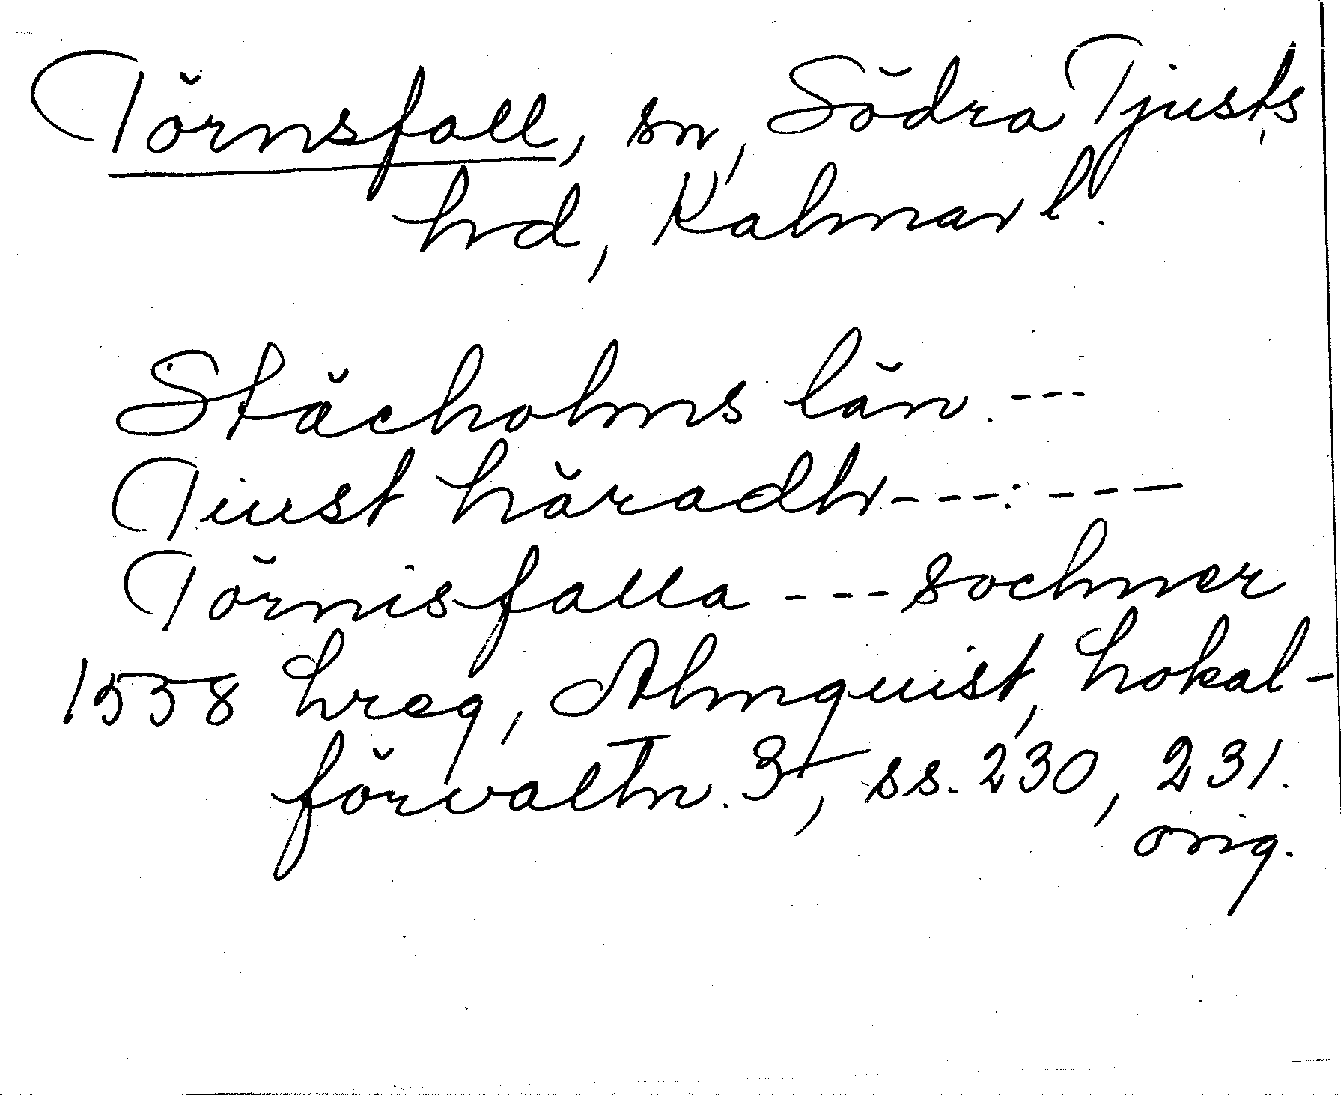 Törnsfall, sn, Södra Tjusts
hd, Kalmar l.
Stächolms län. ---
Tiust häradh ---:---
Törnisfalla --- sochner
1558 hreg, Almquist, Lokal-
förvaltn. 3, ss. 230, 231.
orig.